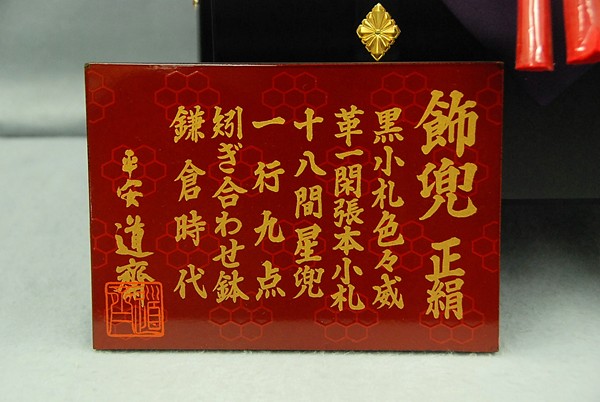 飾兜 正絹
黒小札色々威
革一閑張本小札
十八間星兜
一行九点
矧ぎ合わせ鉢
鎌倉時代
平安 道齋